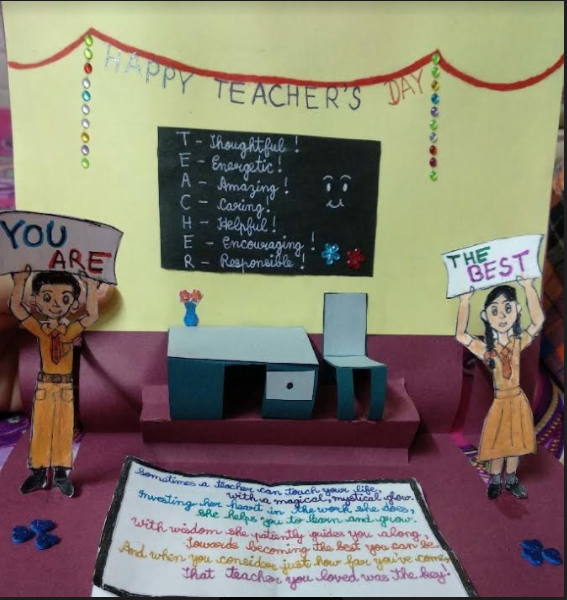 HAPPY TEACHER'S DAY
T - Thoughtful !
E - Energetic !
A - Amazing !
C - Caring !
H - Helpful !
E - Encouraging !
R - Responsible !
YOU
ARE
THE
BEST
Sometimes a teacher can touch your life,
with a magical, mystical glow.
Investing her heart in the work she does,
She helps you to learn and grow.
With wisdom she patiently guides you along,
Towards becoming the best you can be.
And when you consider just how far you've come,
That teacher you loved was the key!